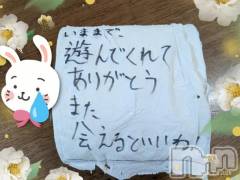 いままで
遊んでくれて
ありがとう
また
会えるといいね